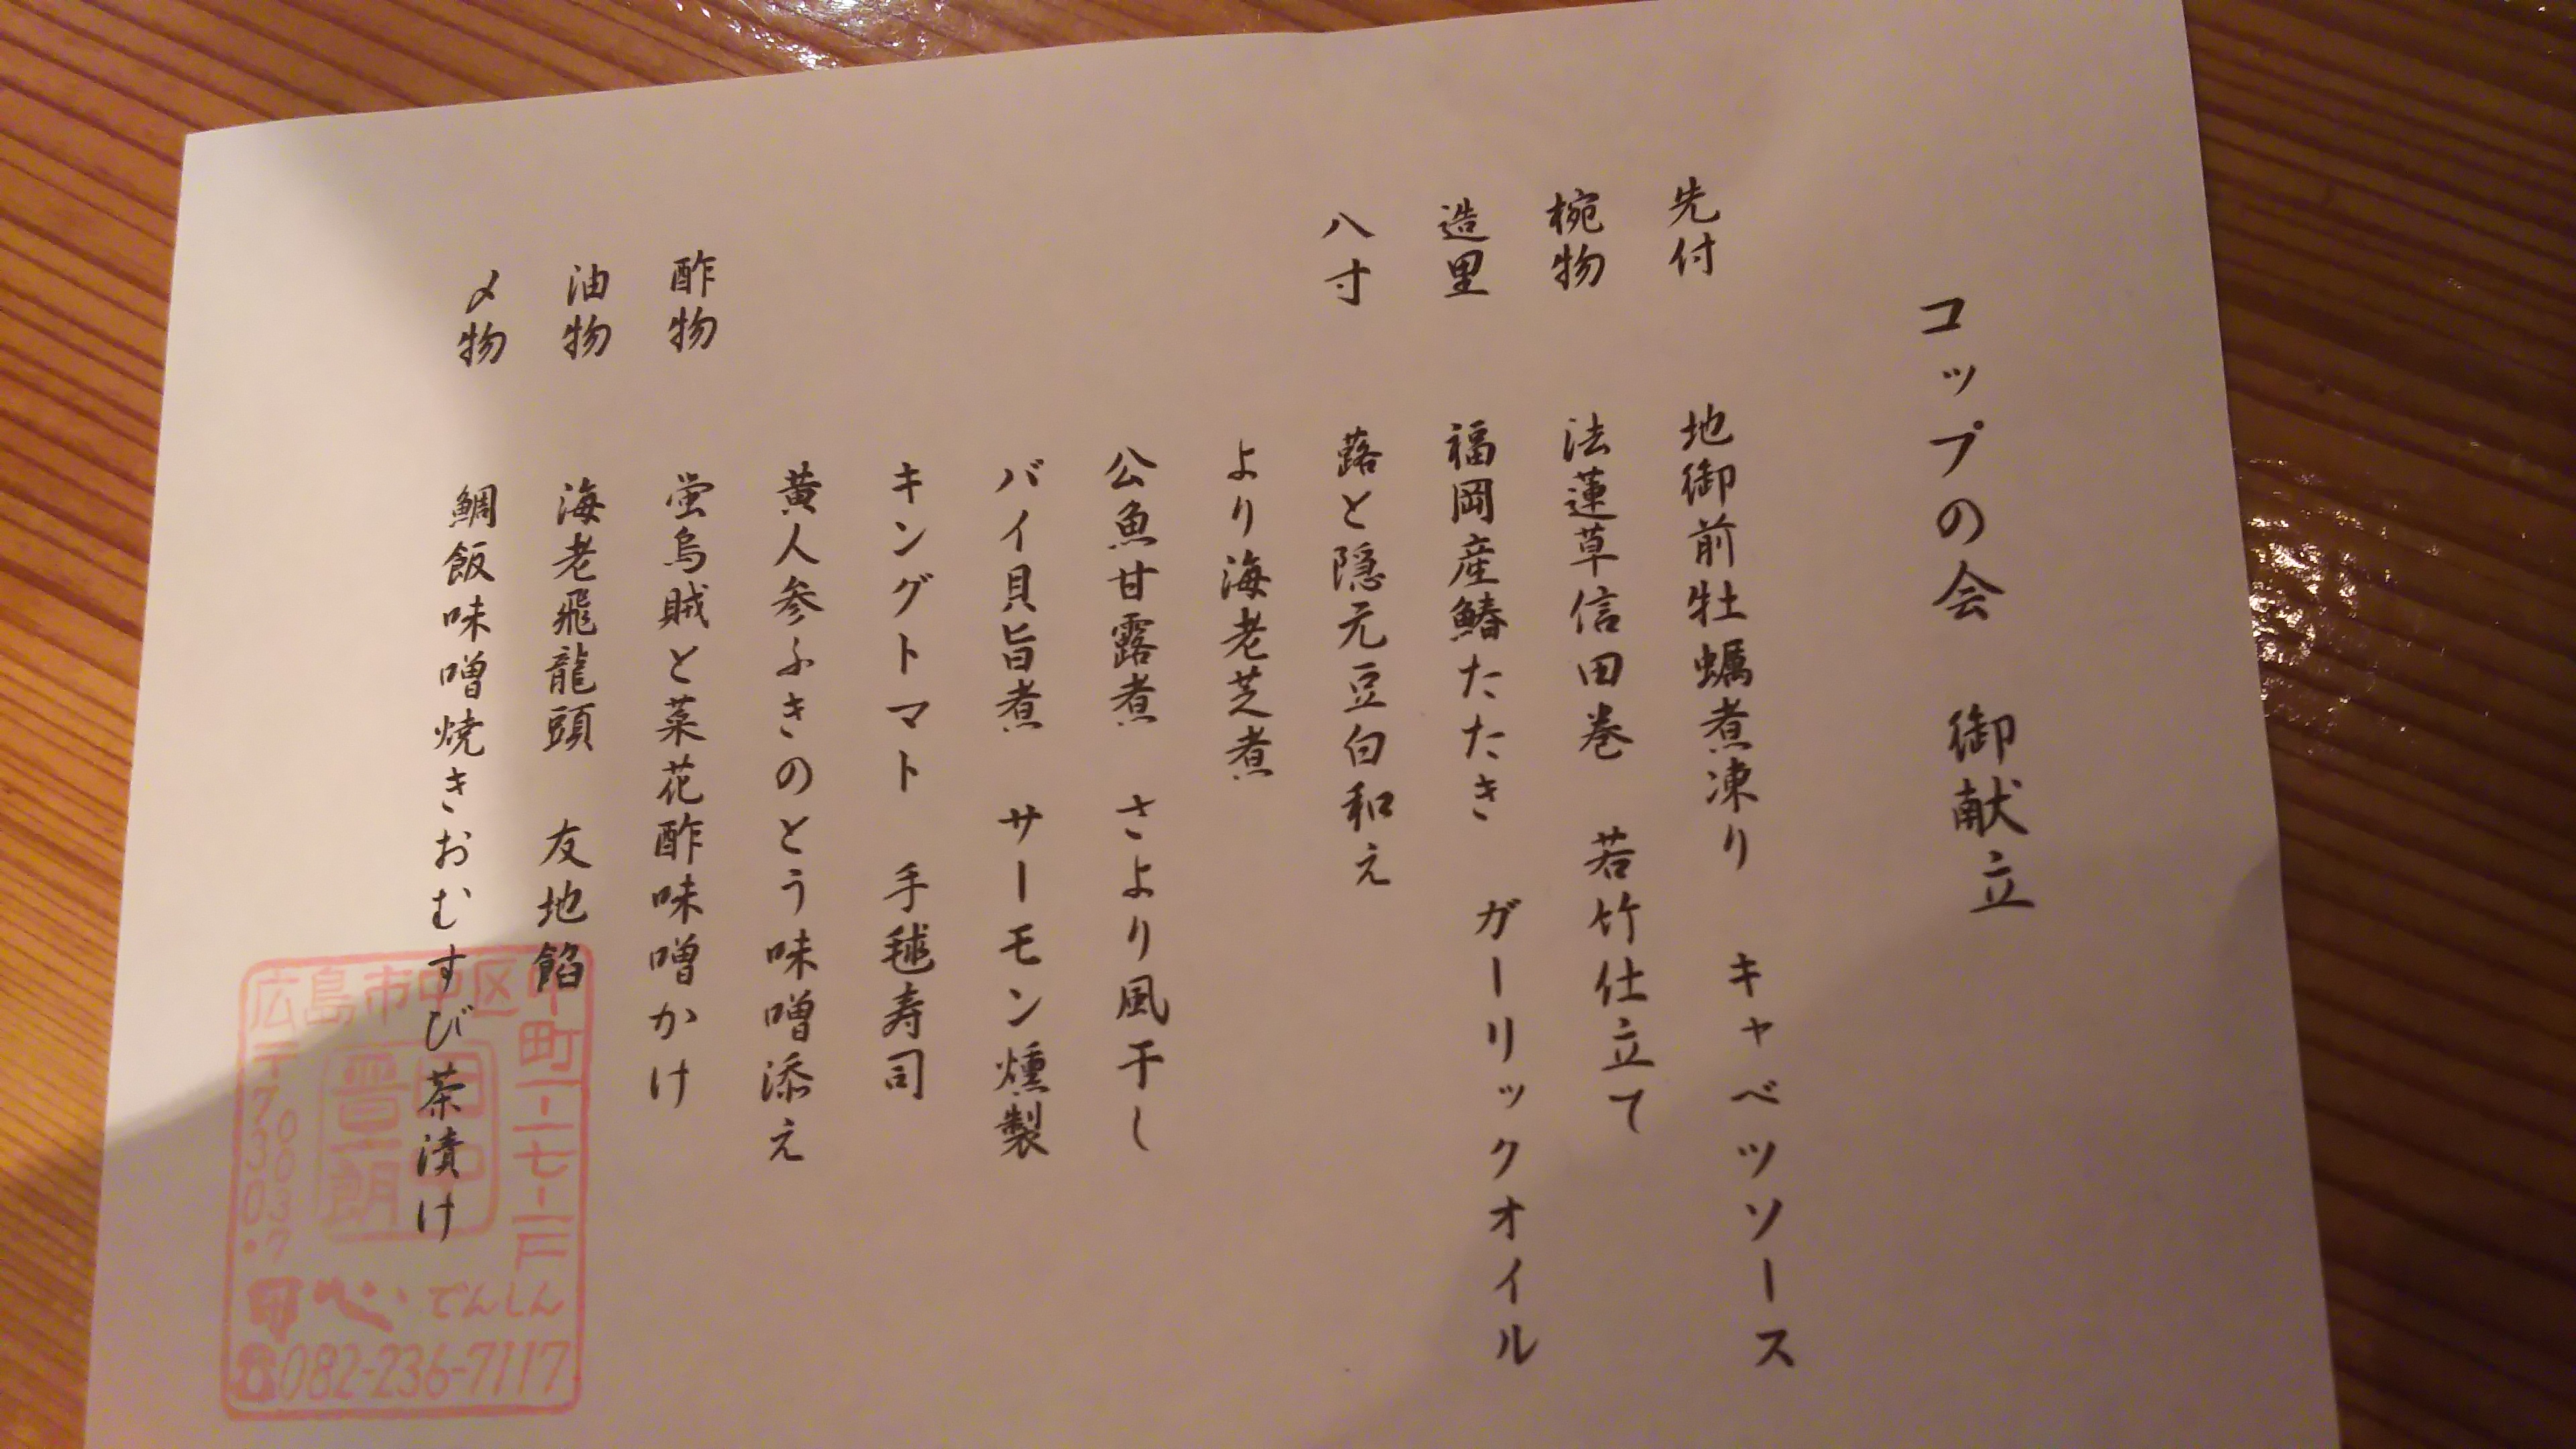 コップの会　御献立
先付　地御前牡蠣煮凍り　キャベツソース
椀物　法蓮草信田巻　若竹仕立て
造里　福岡産鰆たたき　ガーリックオイル
八寸　蕗と隠元豆白和え
より海老芝煮
公魚甘露煮　さより風干し
バイ貝旨煮　サーモン燻製
キングトマト　手毬寿司
黄人参ふきのとう味噌添え
酢物　蛍烏賊と菜花酢味噌かけ
油物　海老飛龍頭　友地餡
〆物　鯛飯味噌焼きおむすび茶漬け
広島市中区中町一-七-二F
〒730-0037
田中
晋一朗
田心 でんしん
☎082-236-7117